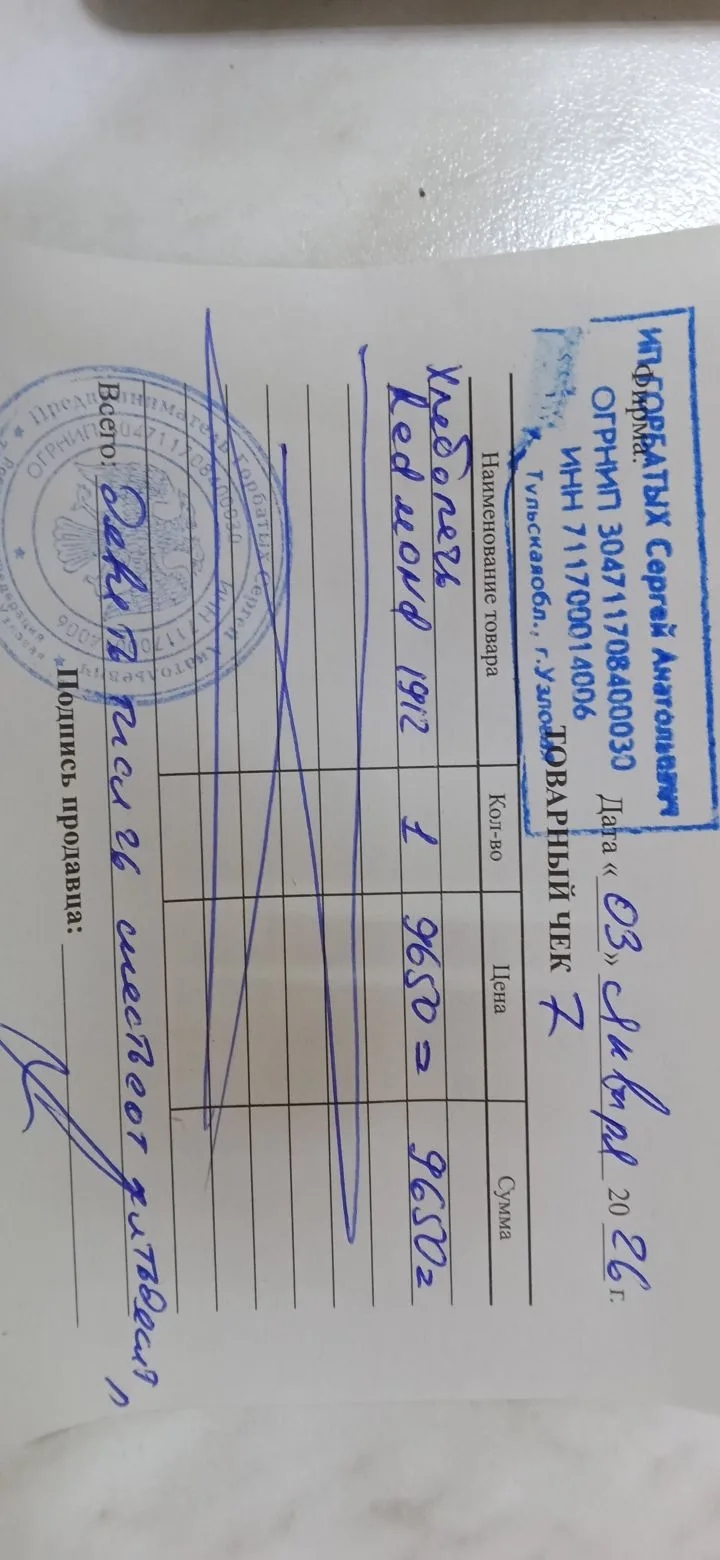 Фирма:
ИП ГОРБАТЫХ Сергей Анатольевич
ОГРНИП 304711708400030
ИНН 711700014006
Тульская обл., г.Узлов
Дата « 03 » января 20 26 г.
ТОВАРНЫЙ ЧЕК 7
Наименование товара Кол-во Цена Сумма
Хлебопечь
Redmond 1912 1 9650= 9650=
Всего: девять тысяч шестьсот пятьдесят р
Подпись продавца:
Предприниматель Горбатых Сергей Анатольевич
ОГРНИП 304711708400030 ИНН 711700014006